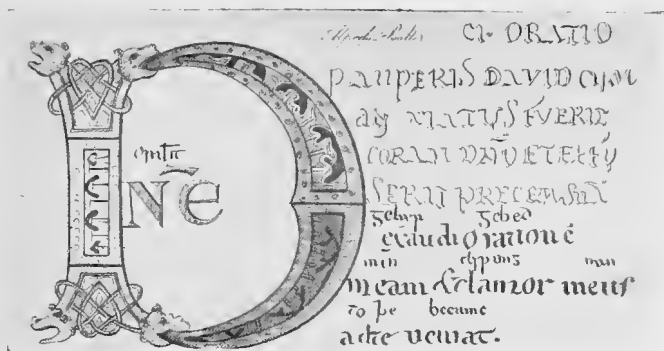 CI· ORATIO
PAUPERIS DAVID CUM
ANXIATUS FUERIT
CORAM DNO ET EFFU
DERIT PRECEM SUAM
DNE
gehyr gebed
exaudi oratione
min clypung min
meam & clamor meus
to þe becume
ad te veniat.